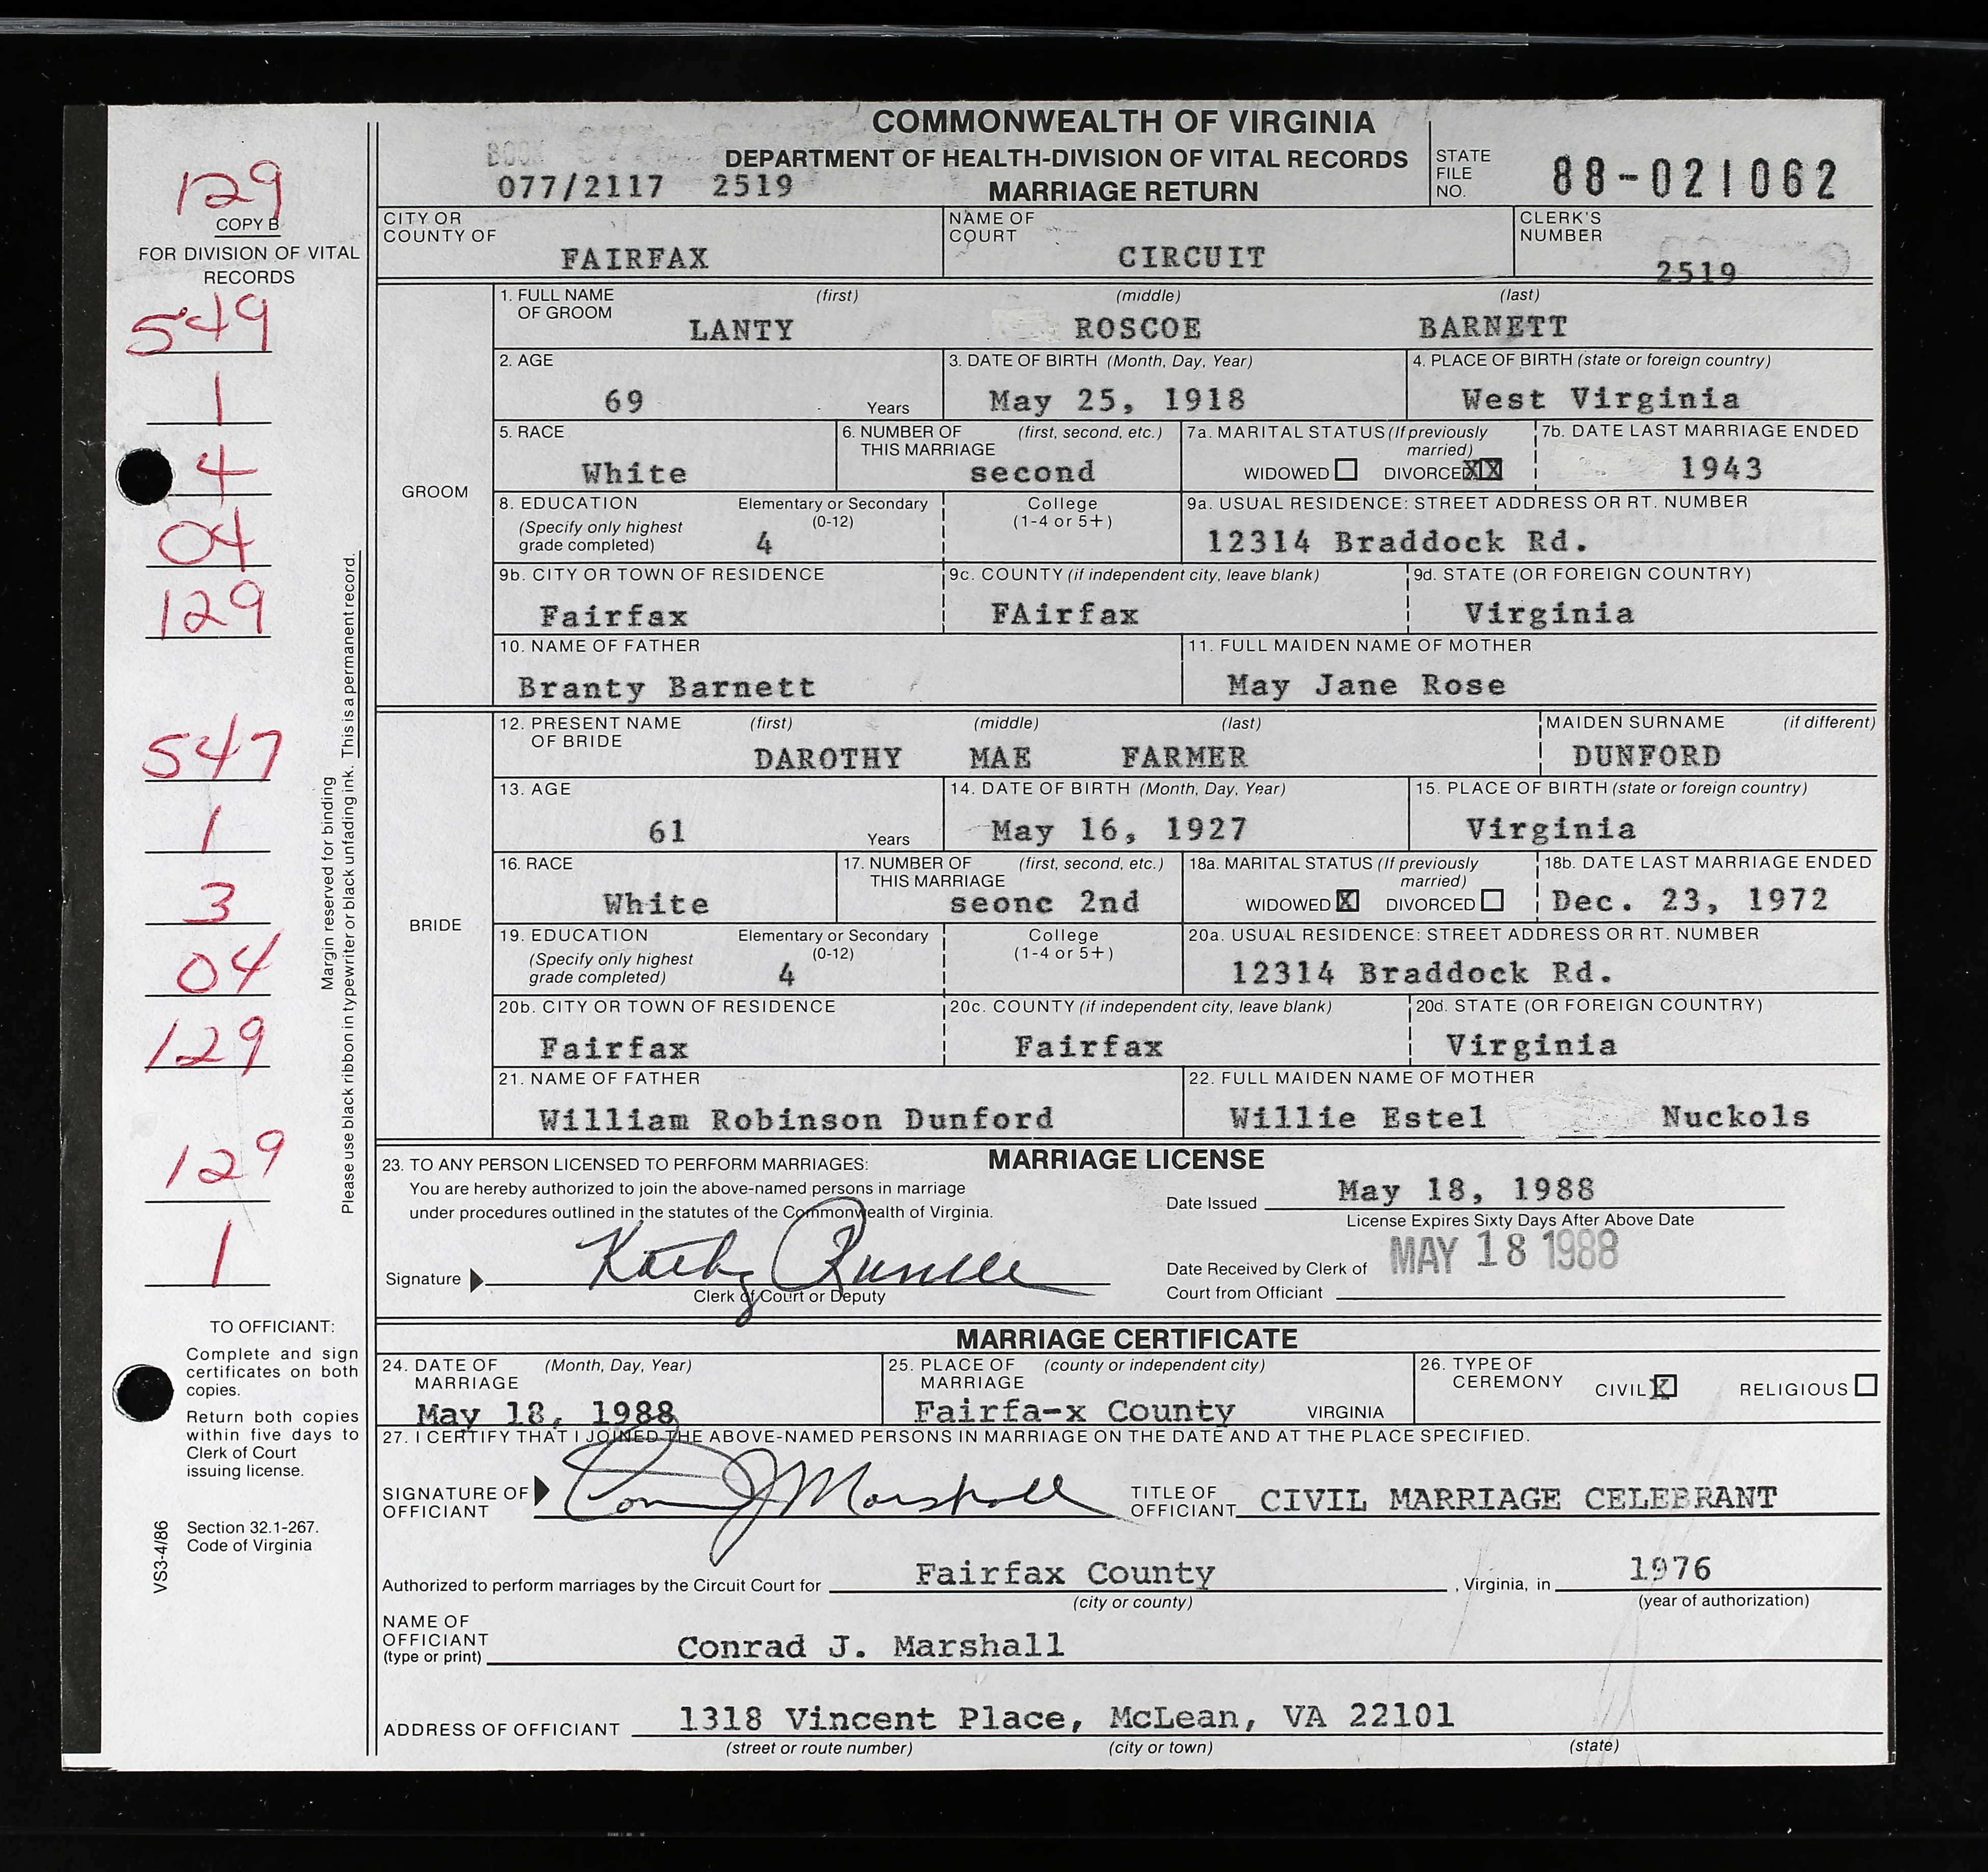 COMMONWEALTH OF VIRGINIA
DEPARTMENT OF HEALTH-DIVISION OF VITAL RECORDS
MARRIAGE RETURN
BOOK
077/2117 2519
STATE FILE NO. 88-021062
129
COPY B
FOR DIVISION OF VITAL
RECORDS
549
1
4
04
129
547
1
3
04
129
129
1
Margin reserved for binding
Please use black ribbon in typewriter or black unfading ink. This is a permanent record.
TO OFFICIANT:
Complete and sign
certificates on both
copies.
Return both copies
within five days to
Clerk of Court
issuing license.
Section 32.1-267.
Code of Virginia
VS3-4/86
CITY OR COUNTY OF FAIRFAX
NAME OF COURT CIRCUIT
CLERK'S NUMBER 2519
GROOM
1. FULL NAME OF GROOM (first) (middle) (last)
LANTY ROSCOE BARNETT
2. AGE 69 Years
3. DATE OF BIRTH (Month, Day, Year) May 25, 1918
4. PLACE OF BIRTH (state or foreign country) West Virginia
5. RACE White
6. NUMBER OF THIS MARRIAGE (first, second, etc.) second
7a. MARITAL STATUS (If previously married) WIDOWED DIVORCED XX
7b. DATE LAST MARRIAGE ENDED 1943
8. EDUCATION (Specify only highest grade completed) Elementary or Secondary (0-12) 4 College (1-4 or 5+)
9a. USUAL RESIDENCE: STREET ADDRESS OR RT. NUMBER
12314 Braddock Rd.
9b. CITY OR TOWN OF RESIDENCE Fairfax
9c. COUNTY (if independent city, leave blank) FAirfax
9d. STATE (OR FOREIGN COUNTRY) Virginia
10. NAME OF FATHER Branty Barnett
11. FULL MAIDEN NAME OF MOTHER May Jane Rose
BRIDE
12. PRESENT NAME OF BRIDE (first) (middle) (last) MAIDEN SURNAME (if different)
DAROTHY MAE FARMER DUNFORD
13. AGE 61 Years
14. DATE OF BIRTH (Month, Day, Year) May 16, 1927
15. PLACE OF BIRTH (state or foreign country) Virginia
16. RACE White
17. NUMBER OF THIS MARRIAGE (first, second, etc.) seonc 2nd
18a. MARITAL STATUS (If previously married) WIDOWED X DIVORCED
18b. DATE LAST MARRIAGE ENDED Dec. 23, 1972
19. EDUCATION (Specify only highest grade completed) Elementary or Secondary (0-12) 4 College (1-4 or 5+)
20a. USUAL RESIDENCE: STREET ADDRESS OR RT. NUMBER
12314 Braddock Rd.
20b. CITY OR TOWN OF RESIDENCE Fairfax
20c. COUNTY (if independent city, leave blank) Fairfax
20d. STATE (OR FOREIGN COUNTRY) Virginia
21. NAME OF FATHER William Robinson Dunford
22. FULL MAIDEN NAME OF MOTHER Willie Estel Nuckols
MARRIAGE LICENSE
23. TO ANY PERSON LICENSED TO PERFORM MARRIAGES:
You are hereby authorized to join the above-named persons in marriage
under procedures outlined in the statutes of the Commonwealth of Virginia.
Date Issued May 18, 1988
License Expires Sixty Days After Above Date
Signature Kathy
Clerk of Court or Deputy
Date Received by Clerk of
Court from Officiant MAY 18 1988
MARRIAGE CERTIFICATE
24. DATE OF MARRIAGE (Month, Day, Year) May 18, 1988
25. PLACE OF MARRIAGE (county or independent city) Fairfa-x County VIRGINIA
26. TYPE OF CEREMONY CIVIL X RELIGIOUS
27. I CERTIFY THAT I JOINED THE ABOVE-NAMED PERSONS IN MARRIAGE ON THE DATE AND AT THE PLACE SPECIFIED.
SIGNATURE OF OFFICIANT Conrad J Marshall
TITLE OF OFFICIANT CIVIL MARRIAGE CELEBRANT
Authorized to perform marriages by the Circuit Court for Fairfax County, Virginia, in 1976
(city or county) (year of authorization)
NAME OF OFFICIANT (type or print) Conrad J. Marshall
ADDRESS OF OFFICIANT 1318 Vincent Place, McLean, VA 22101
(street or route number) (city or town) (state)